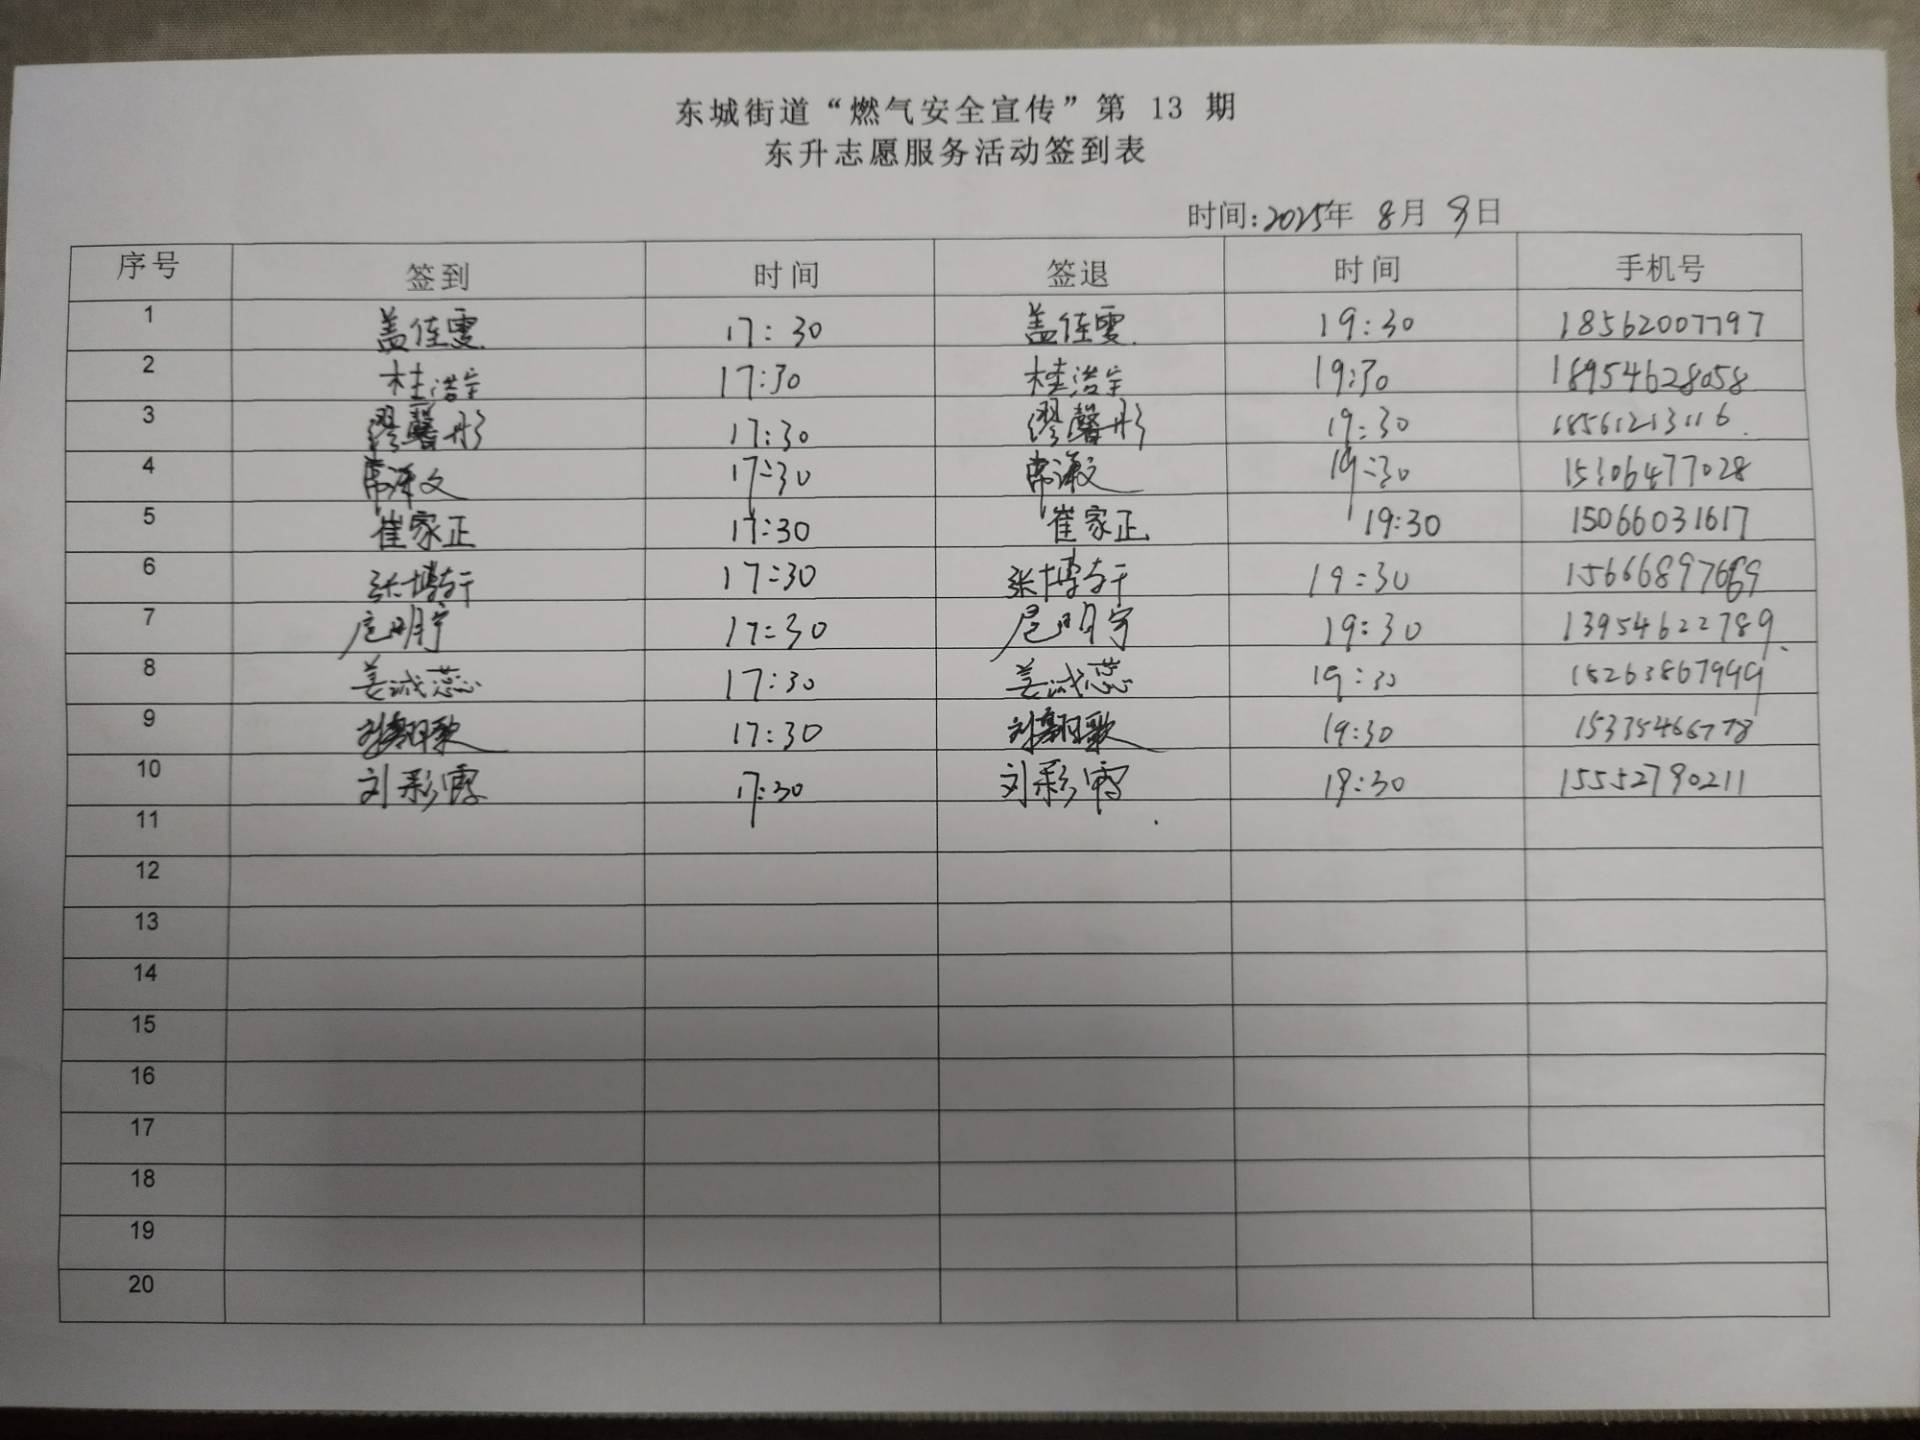 东城街道“燃气安全宣传”第 13 期
东升志愿服务活动签到表
时间:2025年 8月 9日
序号 签到 时间 签退 时间 手机号
1 盖佳雯 17:30 盖佳雯 19:30 18562007797
2 桂浩宇 17:30 桂浩宇 19:30 18954628058
3 缪馨彤 17:30 缪馨彤 19:30 18561213116
4 17:30 19:30 15306477028
5 崔家正 17:30 崔家正 19:30 15066031617
6 张博轩 17:30 张博轩 19:30
7 扈明宇 17:30 扈明宇 19:30 13954622789
8 姜诚蕊 17:30 姜诚蕊 19:30 15263867999
9 刘翱歌 17:30 刘翱歌 19:30 15335466778
10 刘彩霞 17:30 刘彩霞 19:30 15552790211
11
12
13
14
15
16
17
18
19
20